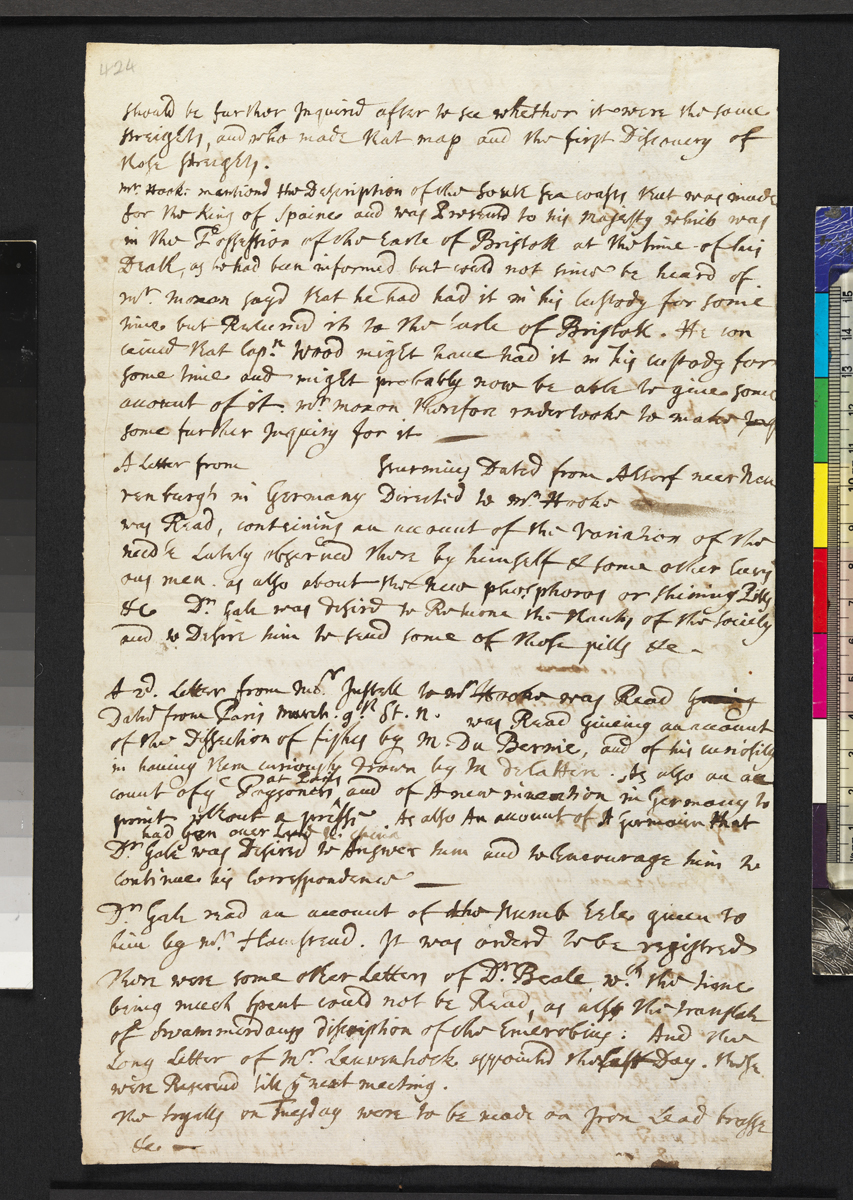 424
should be further Inquired after to see whether it were the same
streights, and who made that map and the first Discovery of
those streights.
Mr. Hook: mentiond the Description of the South sea coasts that was made
for the King of Spaine and was Presented to his Majesty which was
in the Possession of the Earle of Bristoll at the time of his
Death, as he had been informed but could not since be heard of.
Mr. moxon sayd that he had had it in his custody for some
time but Returned it to the Earle of Bristoll. He con
ceiued that Capn. Wood might haue had it in his custody for
some time and might probably now be able to giue some
account of it. Mr. moxon therefore undertooke to make
some further Inquiry for it
A Letter from Sturmius Dated from Altorf near Neu
renburgh in Germany Directed to Mr. Hooke
was Read, containing an account of the Variation of the
needle Lately obserued there by himself & some other Curi
ous men. as also about the new phosphoros or shining Pills
&c Dr. Gale was desird to Returne the thanks of the Society
and to Desire him to send some of those pills &c -
A 2d. Letter from Monsr Justell to Mr Hooke was Read
Dated from Paris march. 9th St. n. was Read Giueing an account
of the Dissection of fishes by M. Du Vernie, and of his curiosity
in hauing them curiously Drawn by M de la Hire. As also an ac
count of ye Poysoners at Paris and of A new inuention in Germany to
print without a presse As also An account of A German that
had gon ouer Land to China
Dr. Gale was Desired to Answer him and to Encourage him to
continue his Correspondence
Dr. Gale read an account of the Numb Eele giuen to
him by Mr. Flamstead. It was orderd to be registred
There were some other Letters of Dr. Beale wch. the time
being much spent could not be Read, as also the translate
of Swammerdams discription of the Emerobius: And the
Long Letter of Mr. Leuvenhoek appointed the last Day. these
were Reserued till ye next meeting.
The tryalls on Tuesday were to be made on Iron Lead brasse
&c